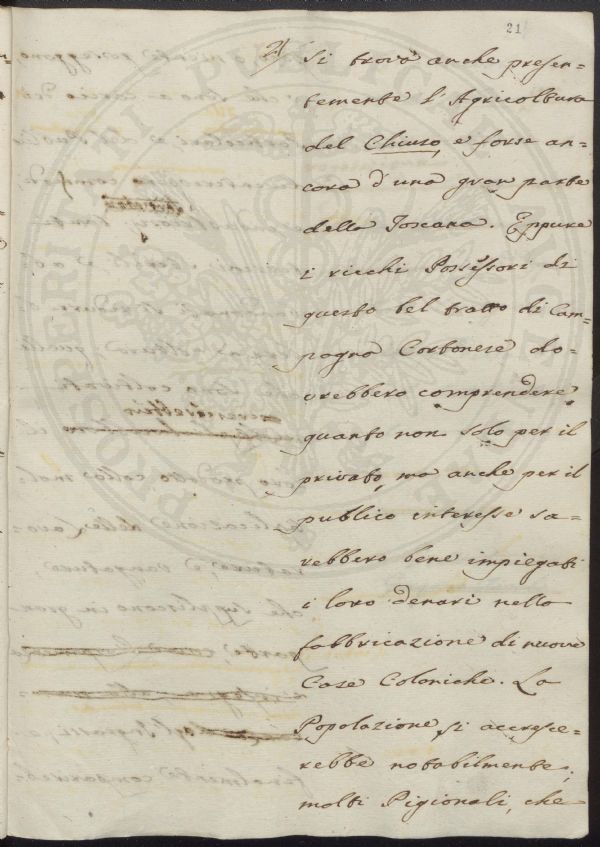 21
21
Si trova anche presen=
temente l'Agricoltura
del Chiuso, e forse an=
cora d'una gran parte
della Toscana. Eppure
i ricchi Possessori di
questo bel tratto di Cam=
pagna Cortonese do=
vrebbero comprendere
quanto non solo per il
privato, ma anche per il
publico interesse sa=
rebbero bene impiegati
i loro denari nella
fabbricazione di nuove
Case Coloniche. La
Popolazione si accresce=
rebbe notabilmente;
molti Pigionali, che